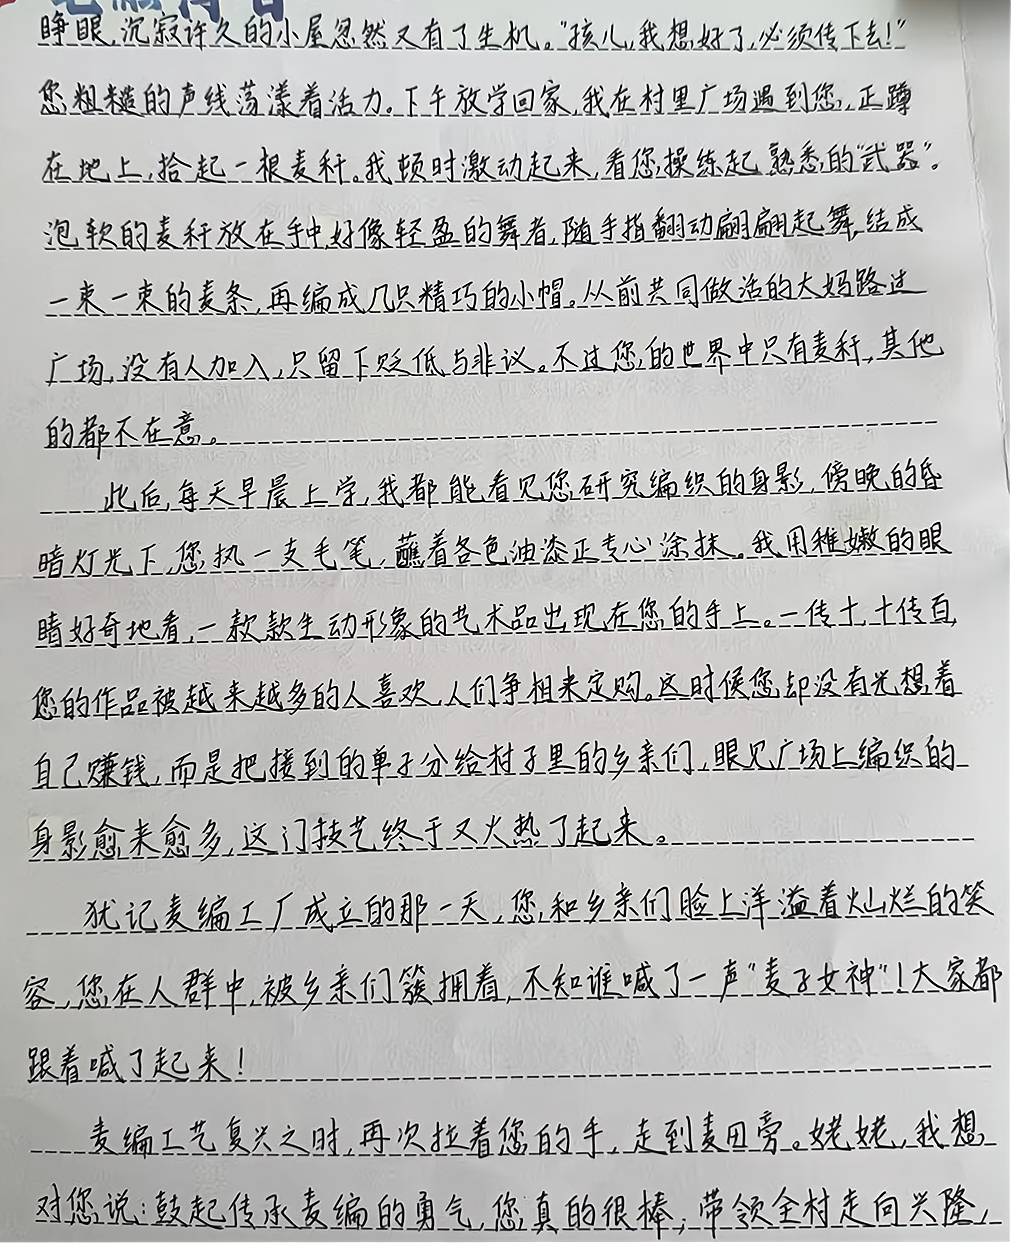 睁眼,沉寂许久的小屋忽然又有了生机。“孩儿,我想好了,必须传下去!”
您粗糙的声线荡漾着活力。下午放学回家,我在村里广场遇到您,正蹲
在地上,拾起一根麦秆。我顿时激动起来,看您操练起熟悉的“武器”。
泡软的麦秆放在手中好像轻盈的舞者,随手指翻动翩翩起舞,结成
一束一束的麦条,再编成几只精巧的小帽。从前共同做活的大妈路过
广场,没有人加入,只留下贬低与非议。不过您的世界中只有麦秆,其他
的都不在意。
此后,每天早晨上学,我都能看见您研究编织的身影,傍晚的昏
暗灯光下,您执一支毛笔,蘸着各色油漆正专心涂抹。我用稚嫩的眼
睛好奇地看,一款款生动形象的艺术品出现在您的手上。一传十,十传百,
您的作品被越来越多的人喜欢,人们争相来定购。这时候您却没有光想着
自己赚钱,而是把接到的单子分给村子里的乡亲们,眼见广场上编织的
身影愈来愈多,这门技艺终于又火热了起来。
犹记麦编工厂成立的那一天,您和乡亲们脸上洋溢着灿烂的笑
容,您在人群中,被乡亲们簇拥着,不知谁喊了一声“麦子女神”!大家都
跟着喊了起来!
麦编工艺复兴之时,再次拉着您的手,走到麦田旁。姥姥,我想
对您说:鼓起传承麦编的勇气,您真的很棒;带领全村走向兴隆,